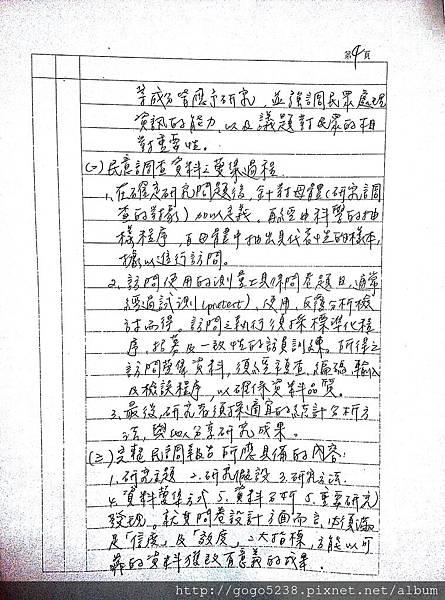 第4頁
等成分皆應予研究,並強調民眾處理
資訊的能力,以及議題對民眾的相
對重要性。
(二)民意調查資料之蒐集過程
1.在確定研究問題後,針對母體(研究調
查的對象)加以定義。再經由科學的抽
樣程序,自母體中抽出具代表性的樣本,
據以進行訪問。
2.訪問使用的測量工具係問卷題目,通常
經過試測(pretest)、使用、反覆分析檢
討而得。訪問之執行須採標準化程
序,招募及一致性的訪員訓練。所得之
訪問蒐集資料,須經預查、編碼、輸入
及檢誤程序,以確保資料品質。
3.最後,研究者須採適宜的統計分析方
法,與他人分享研究成果。
(三)完整民調報告所應具備的內容:
1.研究主題 2.研究假設 3.研究方法
4.資料蒐集方式 5.資料分析 6.重要研究
發現。就其問卷設計方面而言,
是「信度」及「效度」二大指標,方能以可
靠的資料獲致有意義的成果。
http://gogo5238.pixnet.net/album